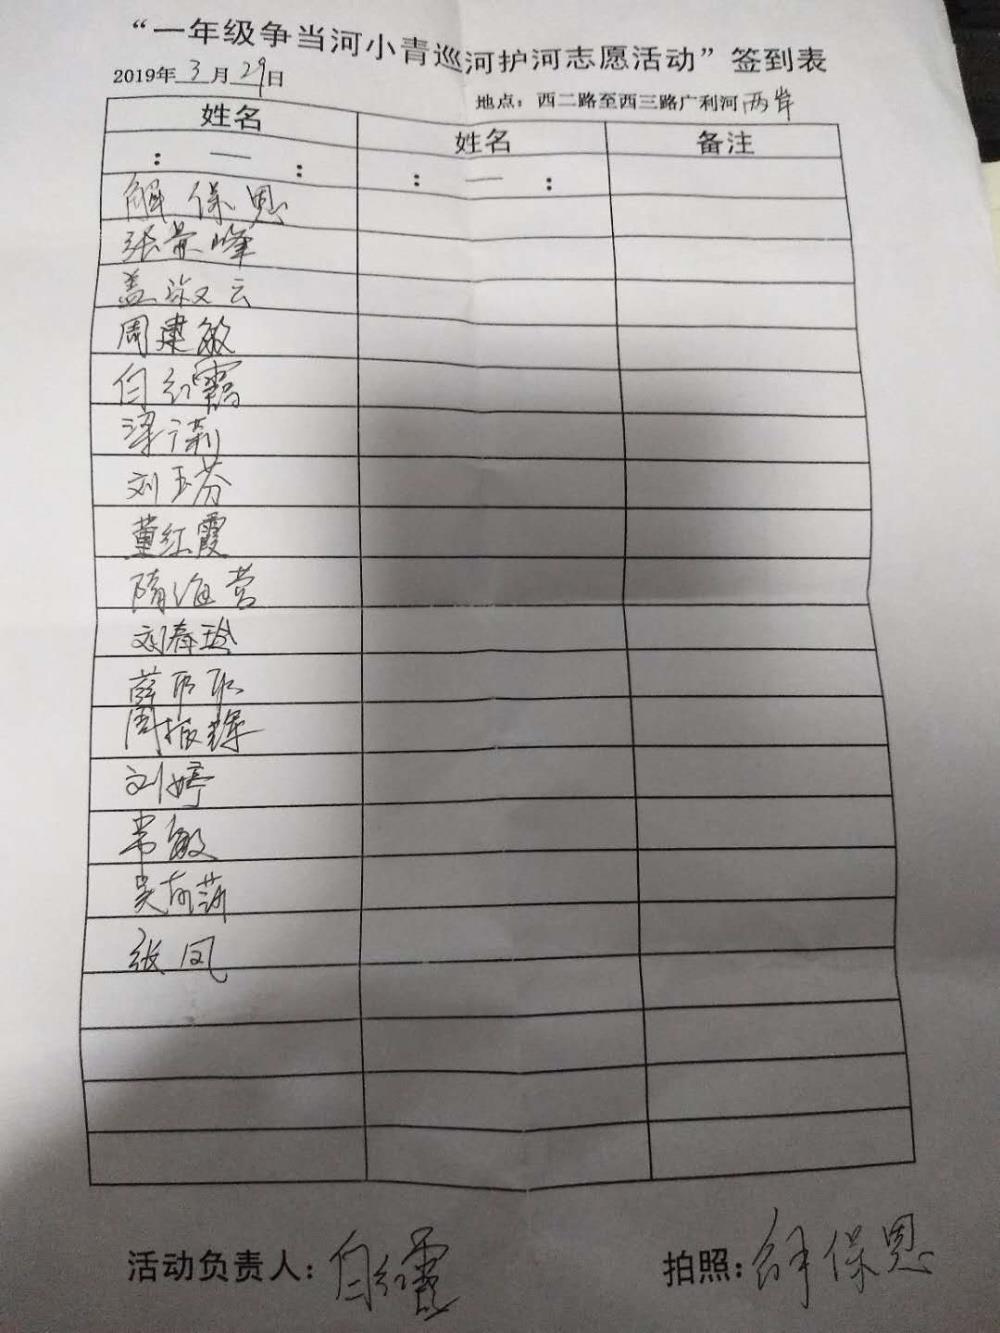 “一年级争当河小青巡河护河志愿活动”签到表
2019年3月29日
地点：西二路至西三路广利河两岸
姓名 姓名 备注
： — ： ： — ：
解保恩
张景峰
盖淑云
周建敏
白红霞
梁广莉
刘玉芬
董红霞
隋海营
刘春玲
薛
周振辉
刘婷
常敏
吴莎
张凤
活动负责人：白红霞 拍照：解保恩